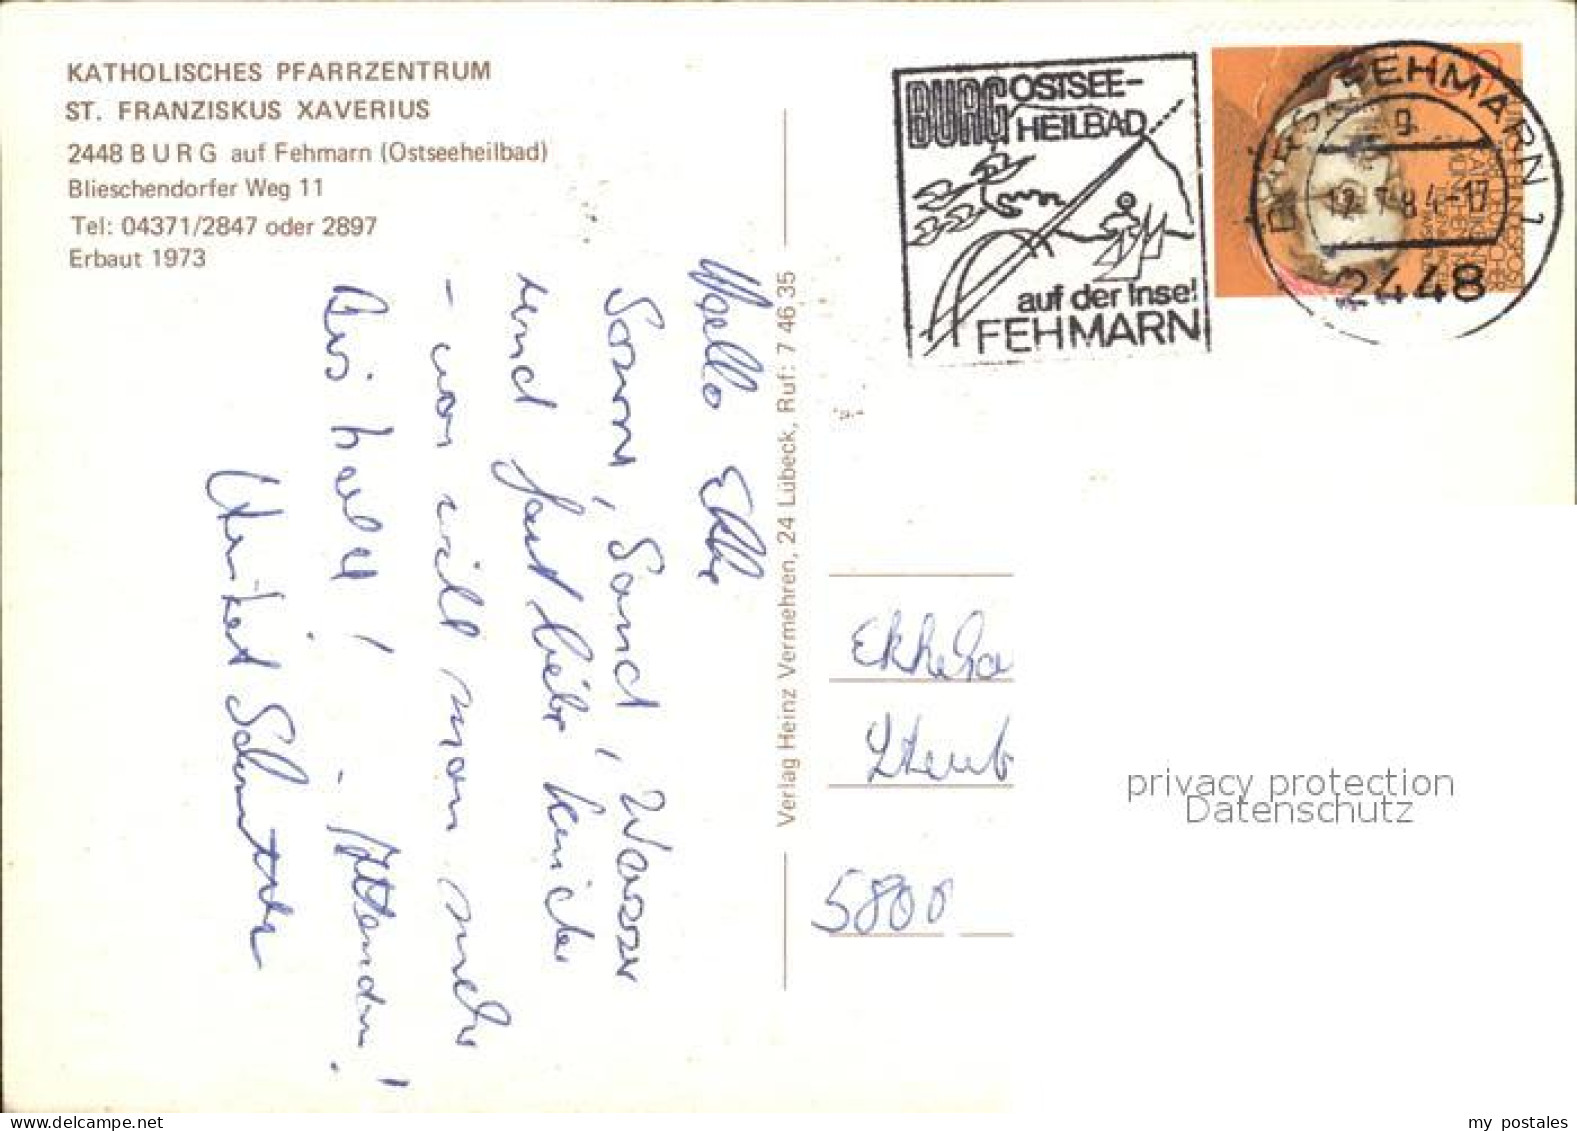 KATHOLISCHES PFARRZENTRUM
ST. FRANZISKUS XAVERIUS
2448 BURG auf Fehmarn (Ostseeheilbad)
Blieschendorfer Weg 11
Tel: 04371/2847 oder 2897
Erbaut 1973
Hallo Ekke
Sonne, Sand, Wasser
und fast liebe Kinder
- was will man mehr
Bis bald!
Verlag Heinz Vermehren, 24 Lübeck, Ruf: 7 46 35
BURG OSTSEE-
HEILBAD
auf der Insel
FEHMARN
FEHMARN 1
g
12.7.84-17
2448
5800
privacy protection
Datenschutz
my postales